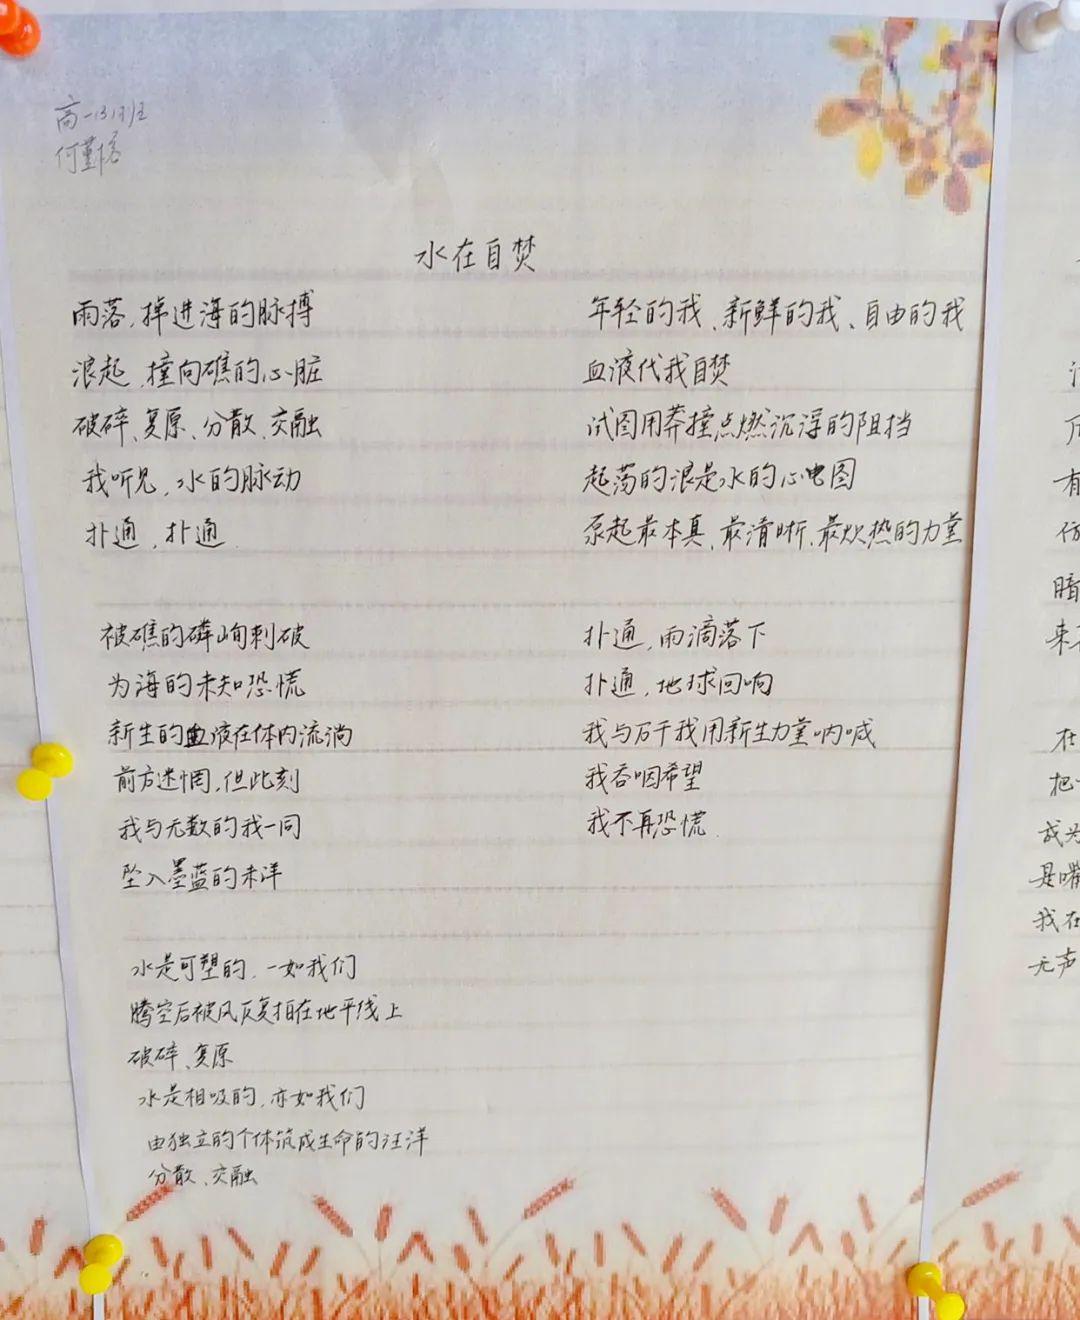 高一(3)班
水在自焚
雨落,掉进海的脉搏
浪起,撞向礁的心脏
破碎、复原、分散、交融
我听见,水的脉动
扑通,扑通
被礁的磷峋刺破
为海的未知恐慌
新生的血液在体内流淌
前方迷惘,但此刻
我与无数的我一同
坠入墨蓝的未洋
水是可塑的,一如我们
腾空后被风反复拍在地平线上
破碎、复原
水是相吸的,亦如我们
由独立的个体筑成生命的汪洋
分散、交融
年轻的我、新鲜的我、自由的我
血液代我自焚
试图用莽撞点燃沉浮的阻挡
起荡的浪是水的心电图
泵起最本真、最清晰、最炽热的力量
扑通,雨滴落下
扑通,地球回响
我与万千我用新生力量呐喊
我吞咽希望
我不再恐慌.
有
暗
在
把
成为
是嘴
我在
无声